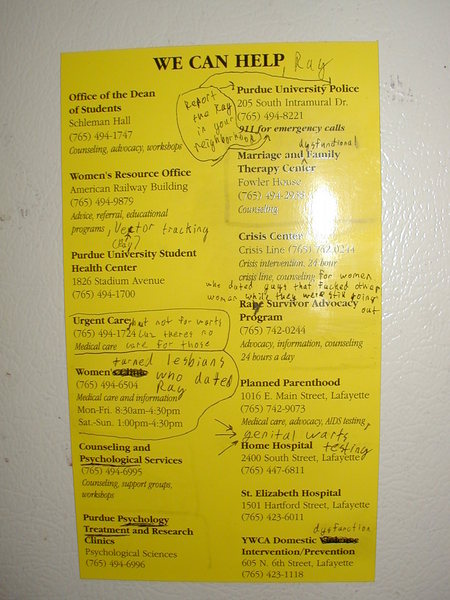 WE CAN HELP, Ray
Office of the Dean
of Students
Schleman Hall
(765) 494-1747
Counseling, advocacy, workshops
Women's Resource Office
American Railway Building
(765) 494-9879
Advice, referral, educational
programs, Vector tracking
(Ray)
Purdue University Student
Health Center
1826 Stadium Avenue
(765) 494-1700
Urgent Care, but not for warts
(765) 494-1724 cuz theres no
Medical care cure for those
turned lesbians
Women's who dated
(765) 494-6504 Ray
Medical care and information
Mon-Fri. 8:30am-4:30pm
Sat.-Sun. 1:00pm-4:30pm
Counseling and
Psychological Services
(765) 494-6995
Counseling, support groups,
workshops
Purdue Psychology
Treatment and Research
Clinics
Psychological Sciences
(765) 494-6996
Report
the Ray
in your
neighborhood
Purdue University Police
205 South Intramural Dr.
(765) 494-8221
911 for emergency calls
dysfunctional
Marriage and Family
Therapy Center
Fowler House
(765) 494-
Counseling
Crisis Center
Crisis Line (765) 742-0244
Crisis intervention, 24 hour
crisis line, counseling for women
who dated guys that fucked other
women while they were still going
out
Survivor Advocacy
Program
(765) 742-0244
Advocacy, information, counseling
24 hours a day
Planned Parenthood
1016 E. Main Street, Lafayette
(765) 742-9073
Medical care, advocacy, AIDS testing,
genital warts
testing
Home Hospital
2400 South Street, Lafayette
(765) 447-6811
St. Elizabeth Hospital
1501 Hartford Street, Lafayette
(765) 423-6011
dysfunction
YWCA Domestic
Intervention/Prevention
605 N. 6th Street, Lafayette
(765) 423-1118